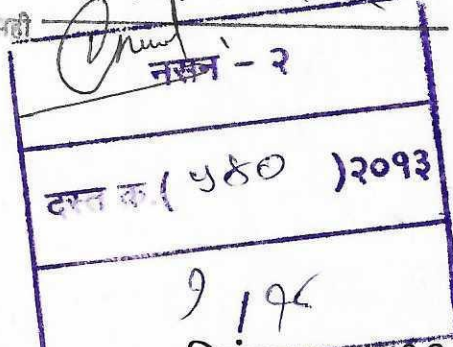 सही
नसन - २
दस्त क. ( ५४० ) २०१३
१ / १८